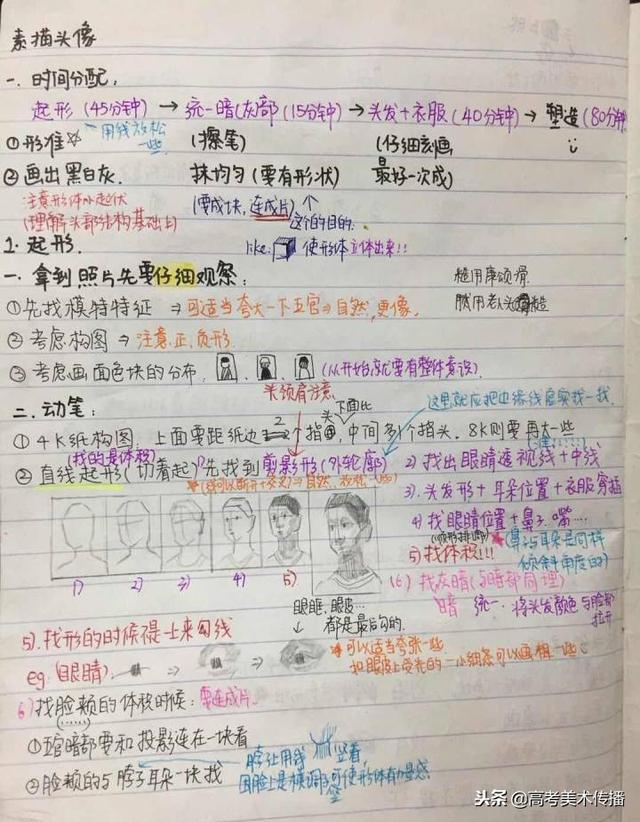 素描头像
一.时间分配,
起形(45分钟)→统一暗(灰)部(15分钟)→头发+衣服(40分钟)→塑造(80分钟
①形准☆ 用线放松一些. (擦笔) (仔细刻画,
②画出黑白灰. 抹均匀(要有形状) 最好一次成)
注意形体小起伏 (要成块,连成片)
(理解头部结构基础上) 这个的目的.
1.起形. like: 使形体立体出来!!
一.拿到照片先要仔细观察:
①先找模特特征 ⇒可适当夸大一下五官⇒自然,更像.
②考虑构图⇒注意正.负形.
③考虑画面色块的分布, (从开始就要有整体意识).
头颈肩注意.
二.动笔: 头 下面比 这里就应把中缘线虚实找一找.
①4K纸构图:上面要距纸边 2个指,中间多1个指头.8K则要再大一些
(找的是体积)
②直线起形(切着起)先找到剪影形(外轮廓) 2)找出眼睛透视线+中线
⇒自然 3).头发形+耳朵位置+衣服穿插
4)找眼睛位置+鼻子.嘴.....
(鼻子与耳朵是同样倾斜角度的)
5)找体积!!!
(6)找灰暗(与暗部同理)
1) 2) 3) 4) 5)
暗 统一.将头发颜色与脸部拉开
眼眶,眼皮...都是最后勾的.
5).找形的时候不是一上来勾线
eg.(眼睛). → ⇒
可以适当夸张一些
如眼皮上受光的一小细条可以画粗一些
6)找脸颊的体积时候:要连成片.
①五官暗部要和投影连在一块看
脖子上用线 竖着,
②脸颊的与脖子耳朵一块找
因脸上是横调子可使形体有力量感
头条@高考美术传播